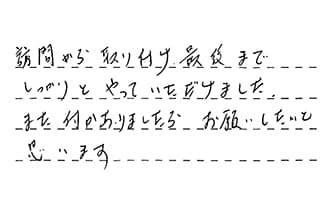 訪問から取り付け最後まで
しっかりとやっていただけました。
また何かありましたら お願いしたいと
思います